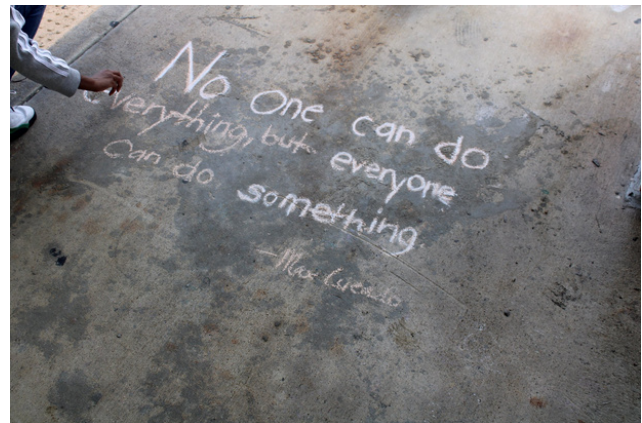 No One can do
everything, but everyone
Can do something
-Max Lucado